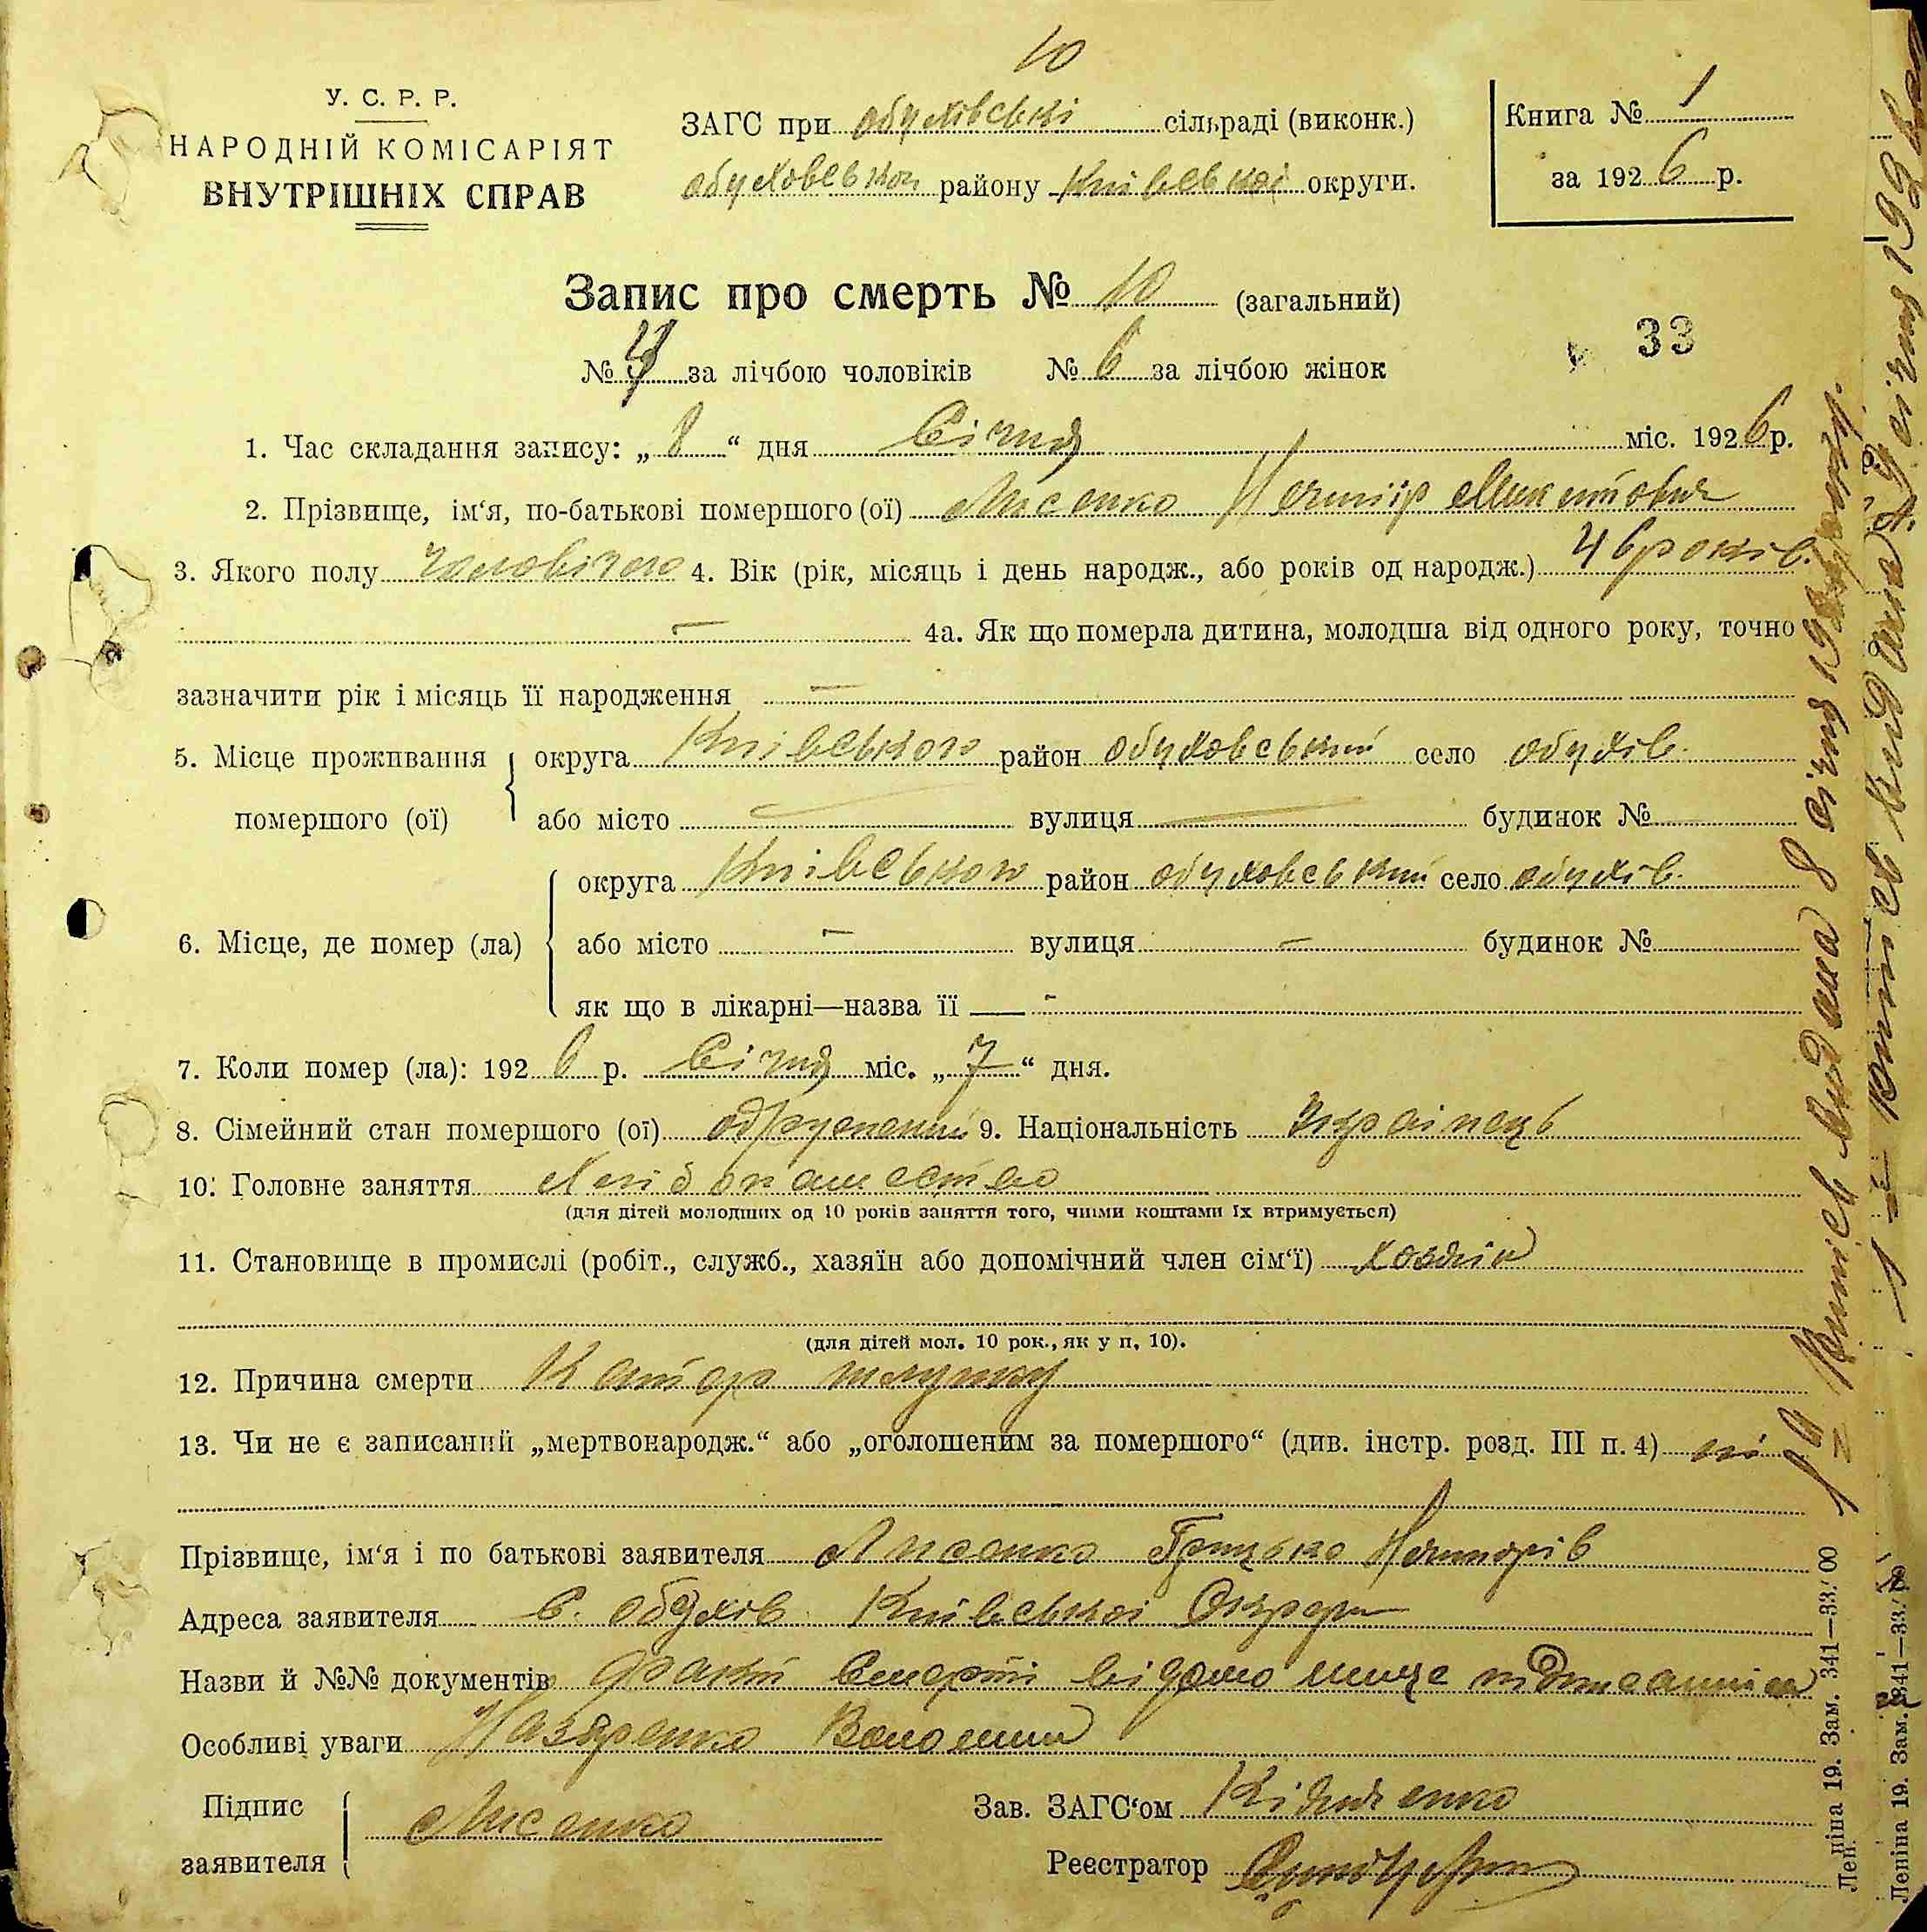 10
У. С. Р. Р.
НАРОДНІЙ КОМІСАРІЯТ
ВНУТРІШНІХ СПРАВ
ЗАГС при обухівській сільраді (виконк.)
обуховського району Київської округи.
Книга № 1
за 1926 р.
Запис про смерть № 10 (загальний)
№ 4 за лічбою чоловіків № 6 за лічбою жінок
33
1. Час складання запису: „ 8 “ дня Січня міс. 1926 р.
2. Прізвище, ім‘я, по-батькові помершого (ої) Лисенко Ничипір Микитович
3. Якого полу чоловічого 4. Вік (рік, місяць і день народж., або років од народж.) 46 років.
— 4а. Як що померла дитина, молодша від одного року, точно
зазначити рік і місяць її народження —
5. Місце проживання округа Київського район обуховський село обухів.
помершого (ої) або місто — вулиця — будинок №
округа Київського район обуховський село обухів.
6. Місце, де помер (ла) або місто — вулиця — будинок №
як що в лікарні—назва її —
7. Коли помер (ла): 1926 р. Січня міс. „ 7 “ дня.
8. Сімейний стан помершого (ої) одружений 9. Національність Українець
10. Головне заняття Хліборобство
(для дітей молодших од 10 років заняття того, чиїми коштами їх втримується)
11. Становище в промислі (робіт., служб., хазяїн або допомічний член сім‘ї) хозяін
(для дітей мол. 10 рок., як у п. 10).
12. Причина смерти Катар шлунку
13. Чи не є записаний „мертвонародж.“ або „оголошеним за помершого“ (див. інстр. розд. III п. 4) ні
Прізвище, ім‘я і по батькові заявителя Лисенко Грицько Ничипорів
Адреса заявителя С. обухів Київської Округи
Назви й №№ документів факт Смерті відомо нище підписаним
Особливі уваги Назаренко
Підпис заявителя Лисенко
Зав. ЗАГС‘ом
Реєстратор
Копіев видана 8 січня 192
Леніна 19. Зам. 341—33.000